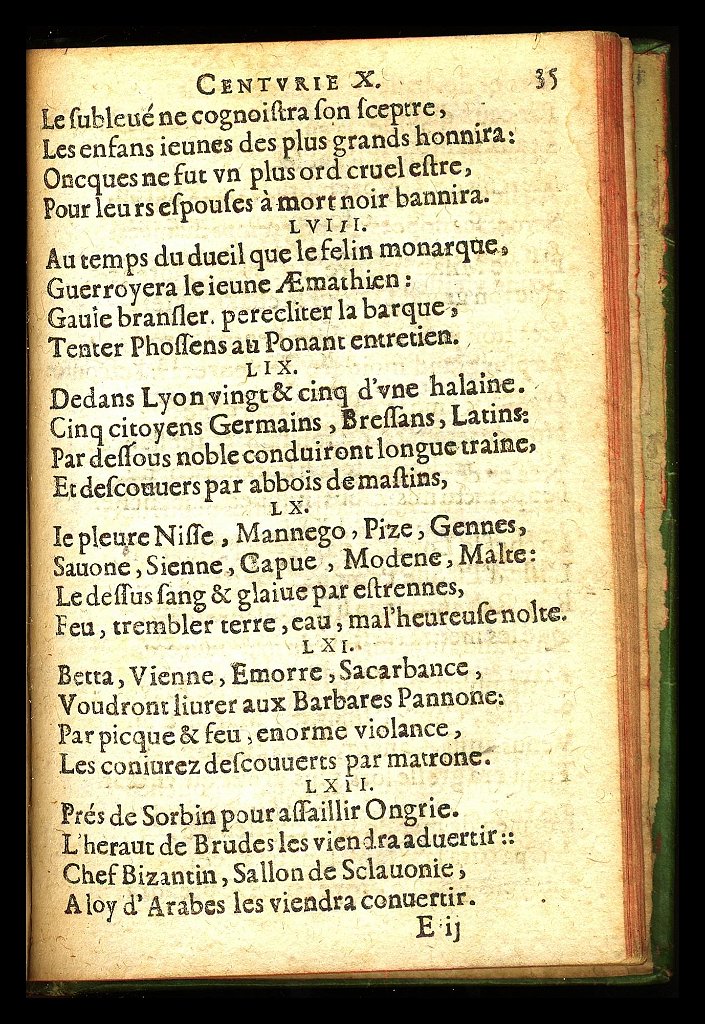 CENTVRIE X. 35
Le ſubleué ne cognoiſtra ſon ſceptre,
Les enfans ieunes des plus grands honnira:
Oncques ne fut vn plus ord cruel eſtre,
Pour leurs eſpouſes à mort noir bannira.
LVIII.
Au temps du dueil que le felin monarque,
Guerroyera le ieune Æmathien:
Gaule branſler. perecliter la barque,
Tenter Phoſſens au Ponant entretien.
LIX.
Dedans Lyon vingt & cinq d'vne halaine.
Cinq citoyens Germains, Breſſans, Latins:
Par deſſous noble conduiront longue traine,
Et deſcouuers par abbois de maſtins,
LX.
Ie pleure Niſſe, Mannego, Pize, Gennes,
Sauone, Sienne, Capue, Modene, Malte:
Le deſſus ſang & glaiue par eſtrennes,
Feu, trembler terre, eau, mal'heureuſe nolte.
LXI.
Betta, Vienne, Emorre, Sacarbance,
Voudront liurer aux Barbares Pannone:
Par picque & feu, enorme violance,
Les coniurez deſcouuerts par matrone.
LXII.
Prés de Sorbin pour aſſaillir Ongrie.
L'heraut de Brudes les viendra aduertir::
Chef Bizantin, Sallon de Sclauonie,
A loy d'Arabes les viendra conuertir.
E ij